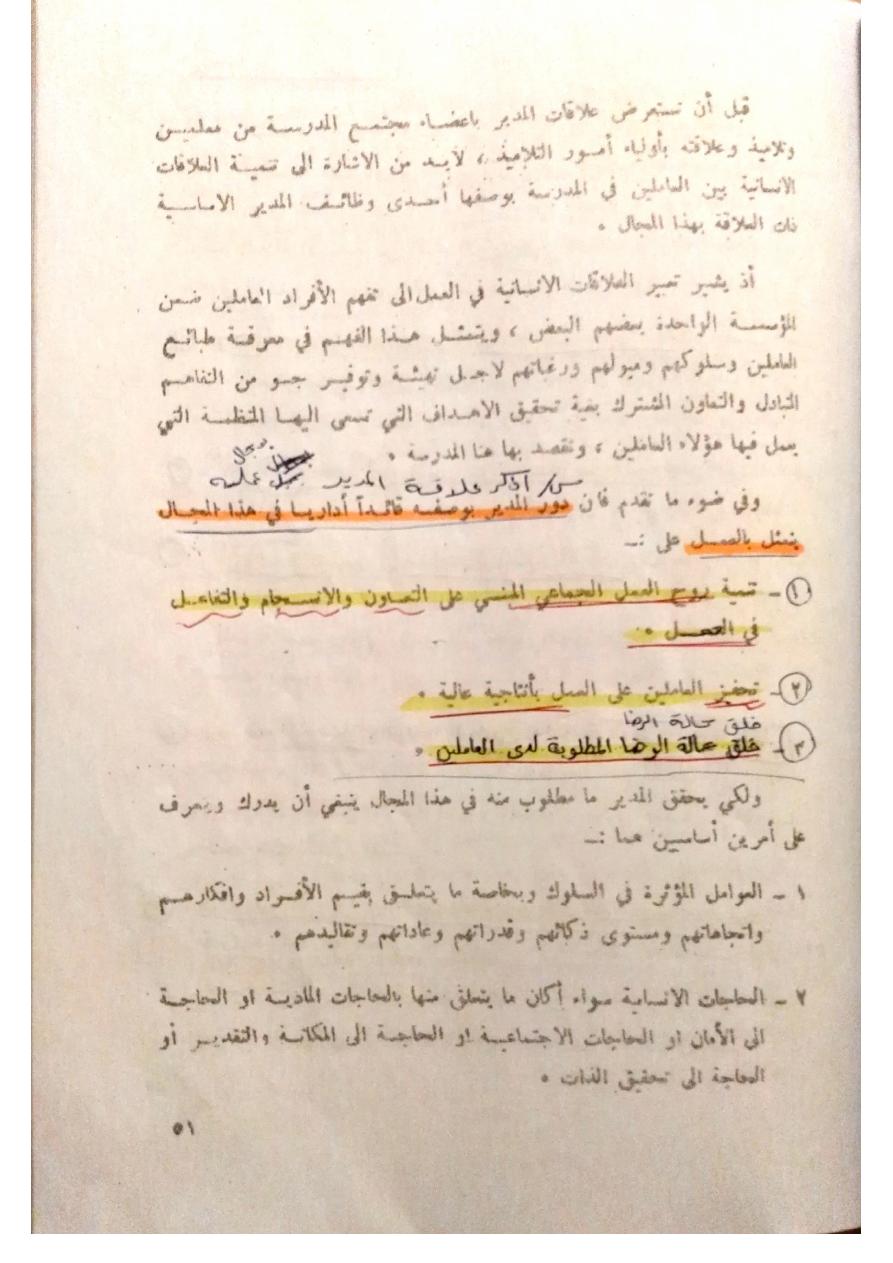 قبل أن نستعرض علاقات المدير باعضاء مجتمع المدرسة من معلمين
وتلاميذ وعلاقته بأولياء أمور التلاميذ ، لابد من الاشارة الى تنمية العلاقات
الانسانية بين العاملين في المدرسة بوصفها أحدى وظائف المدير الاساسية
ذات العلاقة بهذا المجال .
أذ يشير تعبير العلاقات الانسانية في العمل الى تفهم الأفراد العاملين ضمن
المؤسسة الواحدة بعضهم البعض ، ويتمثل هذا الفهم في معرفة طبائع
العاملين وسلوكهم وميولهم ورغباتهم لاجل تهيئة وتوفير جو من التفاهم
المتبادل والتعاون المشترك بغية تحقيق الاهداف التي تسعى اليها المنظمة التي
يعمل فيها هؤلاء العاملين ، ونقصد بها هنا المدرسة .
س/ اذكر علاقة المدير بمجال عمله
وفي ضوء ما تقدم فان دور المدير بوصفه قائداً أداريا في هذا المجال
يتمثل بالعمل على :ـ
١ ـ تنمية روح العمل الجماعي المبني على التعاون والانسجام والتفاعل
في العمل .
٢ ـ تحفيز العاملين على العمل بأنتاجية عالية .
خلق حالة الرضا
٣ ـ خلق حالة الرضا المطلوبة لدى العاملين .
ولكي يحقق المدير ما مطلوب منه في هذا المجال ينبغي أن يدرك ويعرف
على أمرين أساسين هما :ـ
١ ـ العوامل المؤثرة في السلوك وبخاصة ما يتعلق بقيم الأفراد وافكارهم
واتجاهاتهم ومستوى ذكائهم وقدراتهم وعاداتهم وتقاليدهم .
٢ ـ الحاجات الانسانية سواء أكان ما يتعلق منها بالحاجات المادية او الحاجة
الى الأمان او الحاجات الاجتماعية او الحاجة الى المكانة والتقدير أو
الحاجة الى تحقيق الذات .
٥١